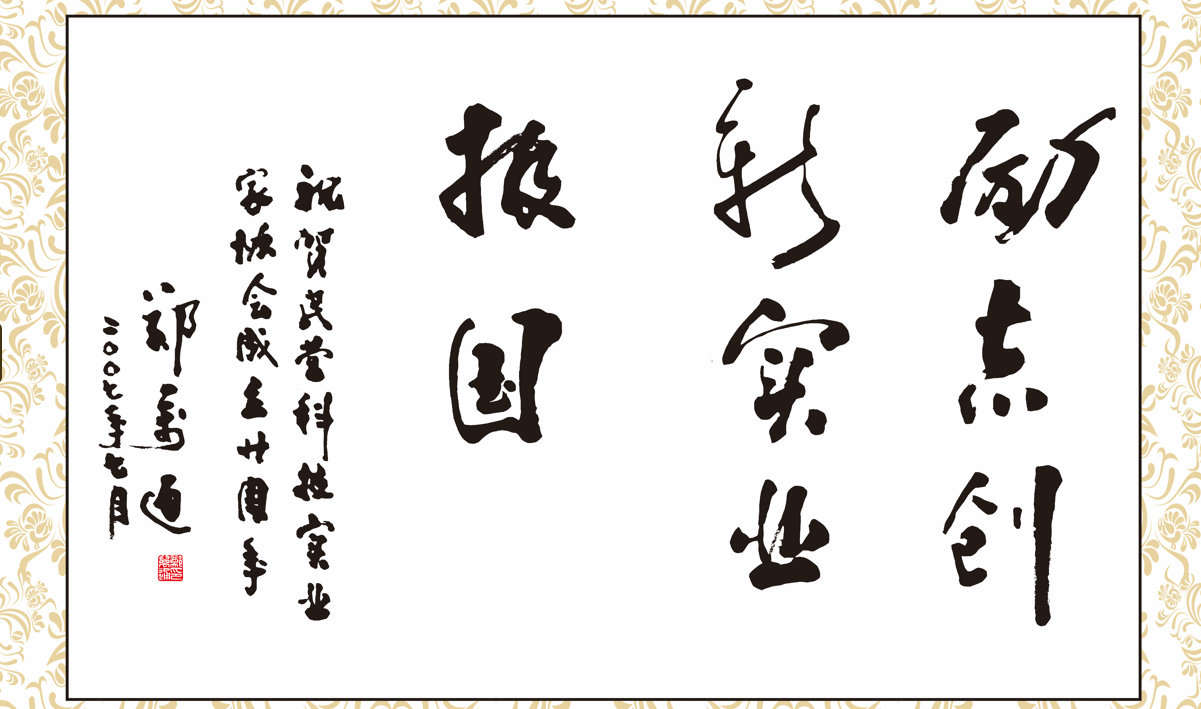 励志创
新实业
报国
祝贺民营科技实业
家协会成立廿周年
郑万通
二〇〇七年七月